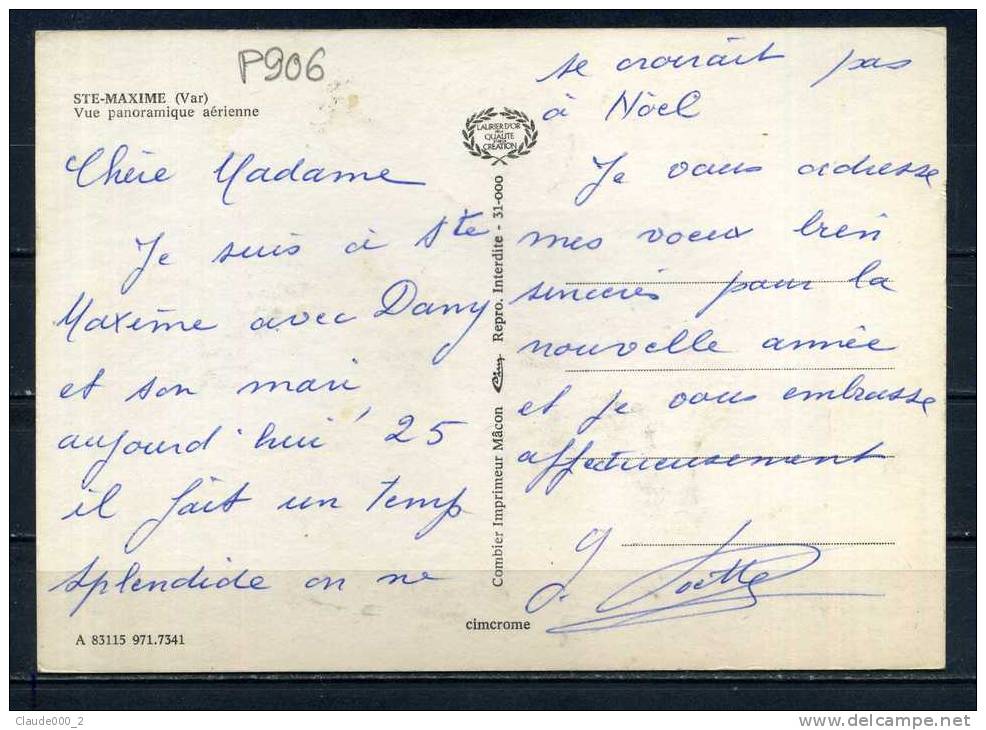 P906
STE-MAXIME (Var)
Vue panoramique aérienne
Chère Madame
Je suis à Ste
Maxime avec Dany
et son mari
aujourd'hui 25
il fait un temp
splendide on ne
se croirait pas
à Nöel
Je vous adresse
mes voeux bien
sincères pour la
nouvelle année
et je vous embrasse
affectueusement
LAURIER D'OR
DE LA
QUALITÉ
CRÉATION
Combier Imprimeur Mâcon Cim Repro. Interdite - 31-000
cimcrome
A 83115 971.7341
Claude000_2
http://www.delcampe.net